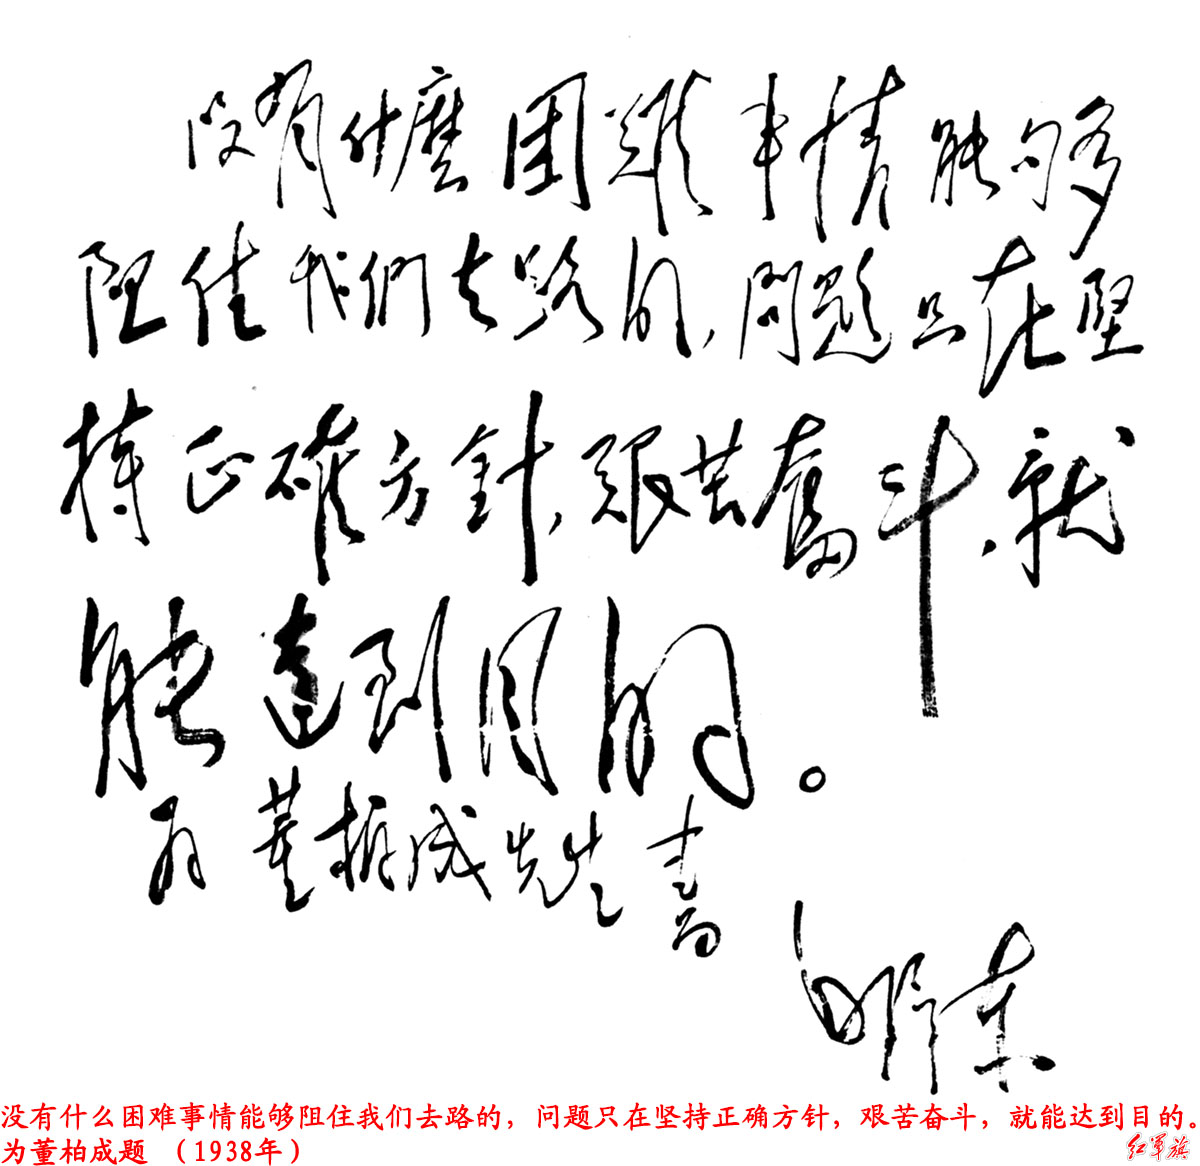 没有什麼困難事情能够
阻住我們去路的，問題只在坚
持正確方針，艰苦奮斗，就
能達到目的。
为董柏成先生書
毛泽東
没有什么困难事情能够阻住我们去路的，问题只在坚持正确方针，艰苦奋斗，就能达到目的。
为董柏成题 （1938年）
红军旗